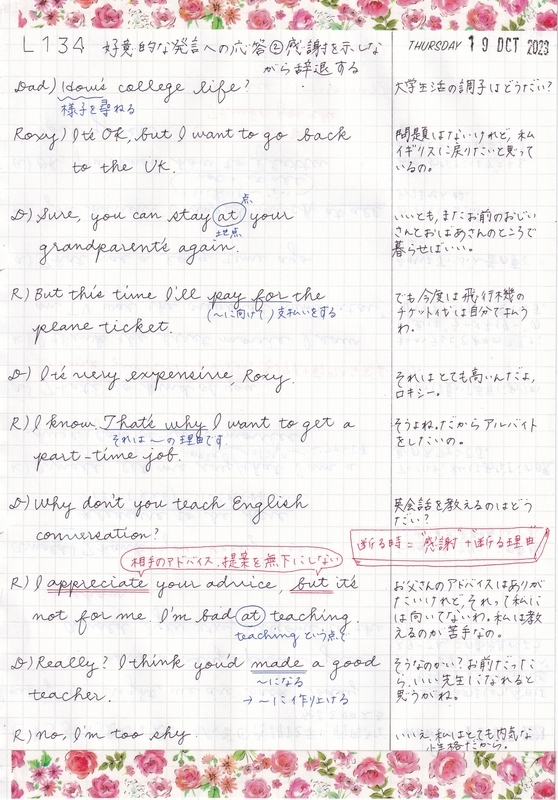 L134 好意的な発言への応答②感謝を示しな
がら辞退する
THURSDAY 19 OCT 2023
Dad) How's college life?
様子を尋ねる
大学生活の調子はどうだい?
Roxy) It's OK, but I want to go back
to the UK.
問題はないけれど,私
イギリスに戻りたいと思って
いるの。
D) Sure, you can stay at your
点
地点
grandparent's again.
いいとも,またお前のおじい
さんとおばあさんのところで
暮らせばいい。
R) But this time I'll pay for the
(〜に向けて)支払いをする
plane ticket.
でも今度は飛行機の
チケット代は自分で払う
わ。
D) It's very expensive, Roxy.
それはとても高いんだよ,
ロキシー。
R) I know. That's why I want to get a
それは〜の理由です
part-time job.
そうよね。だからアルバイト
をしたいの。
D) Why don't you teach English
conversation?
英会話を教えるのはどう
だい?
断る時="感謝"+断る理由
相手のアドバイス,提案を無下にしない
R) I appreciate your advice, but it's
not for me. I'm bad at teaching.
teaching という点で
お父さんのアドバイスはありが
たいけれど,それって私に
は向いてないわ。私は教
えるのが苦手なの。
D) Really? I think you'd made a good
〜になる
teacher.
→〜に作り上げる
そうなのかい?お前だった
ら,いい先生になれると
思うがね。
R) no, I'm too shy.
いいえ,私はとても内気な
性格だから。